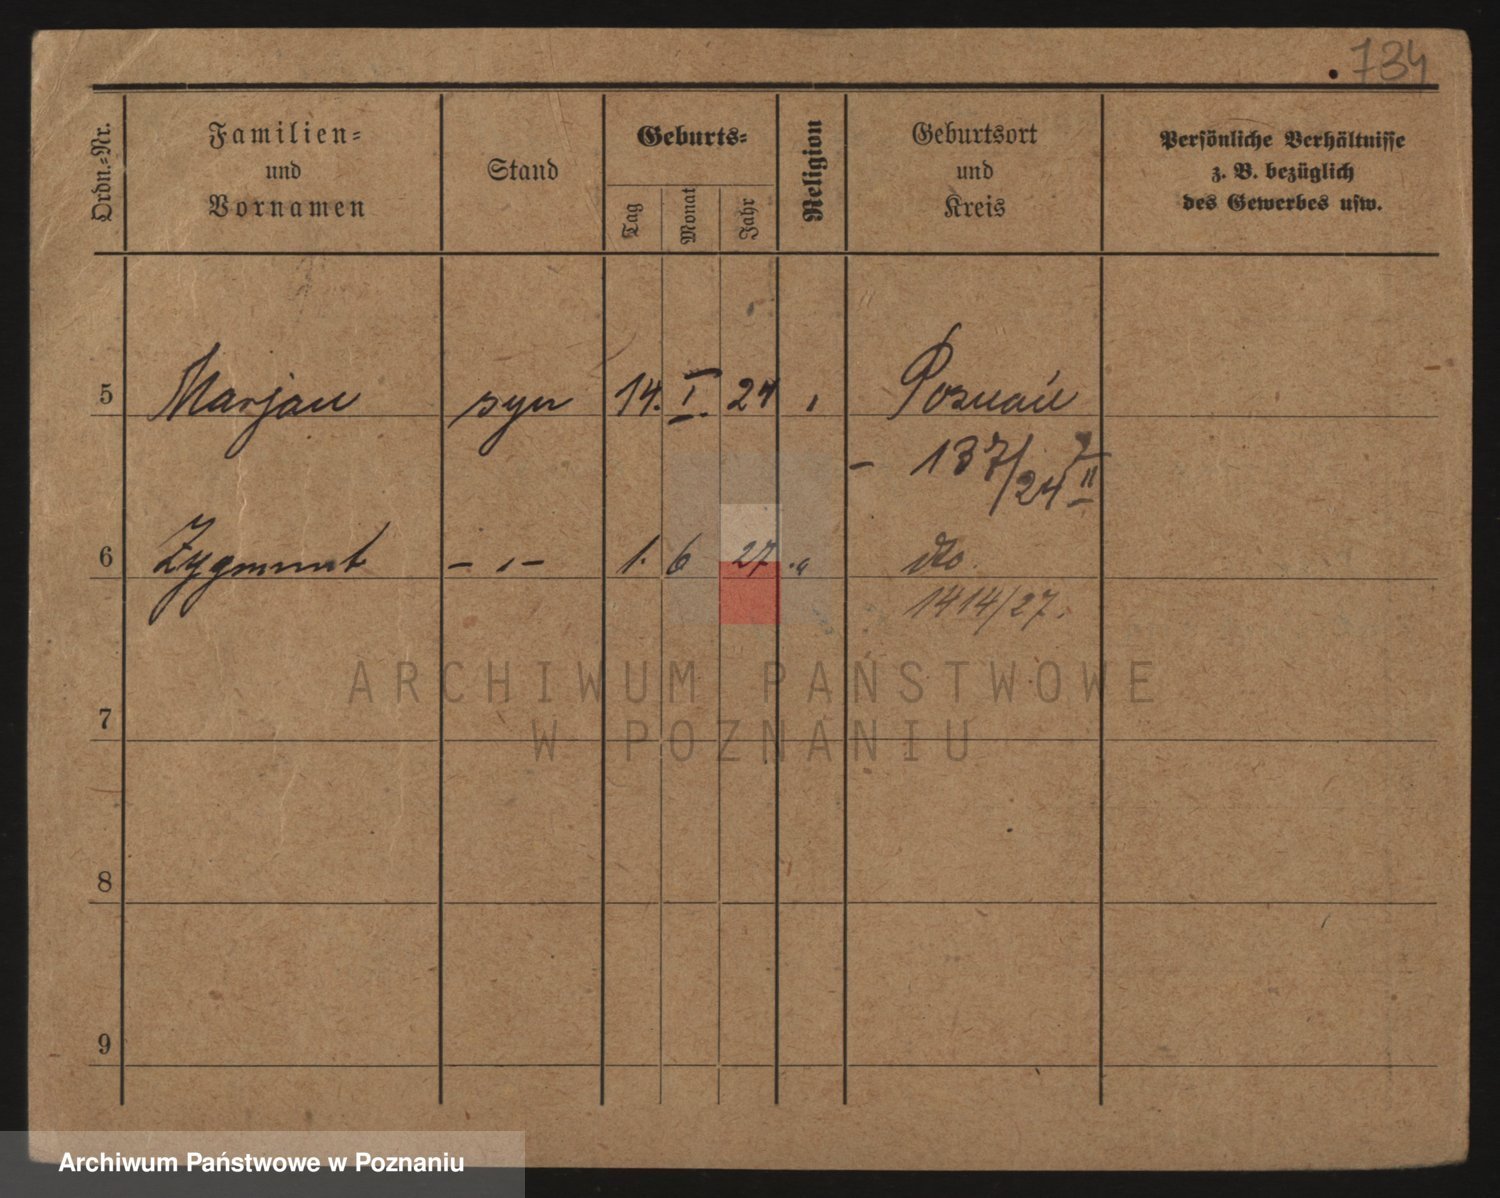 734
Ordn.-Nr.
Familien-
und
Vornamen
Stand
Geburts-
Tag
Monat
Jahr
Religion
Geburtsort
und
Kreis
Persönliche Verhältnisse
z. B. bezüglich
des Gewerbes usw.
5 Marjan syn 14. I. 24 " Poznań
– 137/24 II
6 Zygmunt – " – 1. 6 27 " dto.
1414/27.
ARCHIWUM PAŃSTWOWE
W POZNANIU
7
8
9
Archiwum Państwowe w Poznaniu